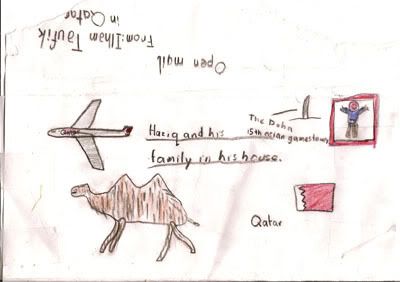 From: Ilham Taufik
in Qatar
Open mail
The Doha
15th asian
and his
family in his house.
Qatar